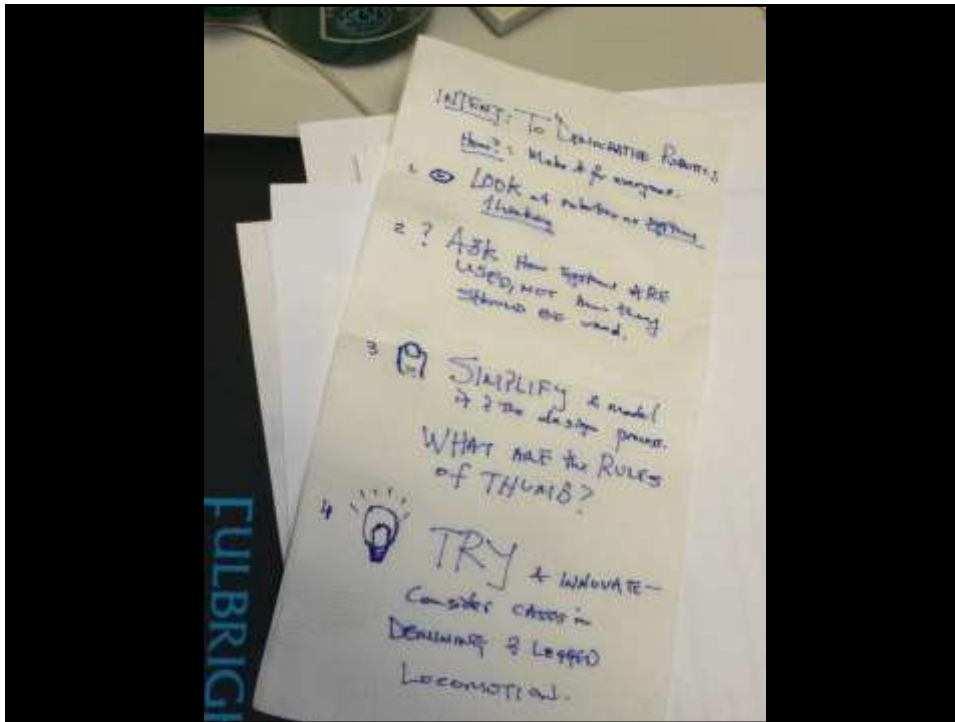 INTENT: To DEMOCRATISE ROBOTICS
How?: Make it for everyone.
1. LOOK at robotics as systems
thinking
2 ? ASK How systems ARE
USED, NOT how they
SHOULD BE used.
3 SIMPLIFY & model
the design process.
WHAT ARE the RULES
of THUMB?
4 TRY & INNOVATE—
Consider CASES in
DEMINING & LEGGED
LOCOMOTION.
FULBRIGH